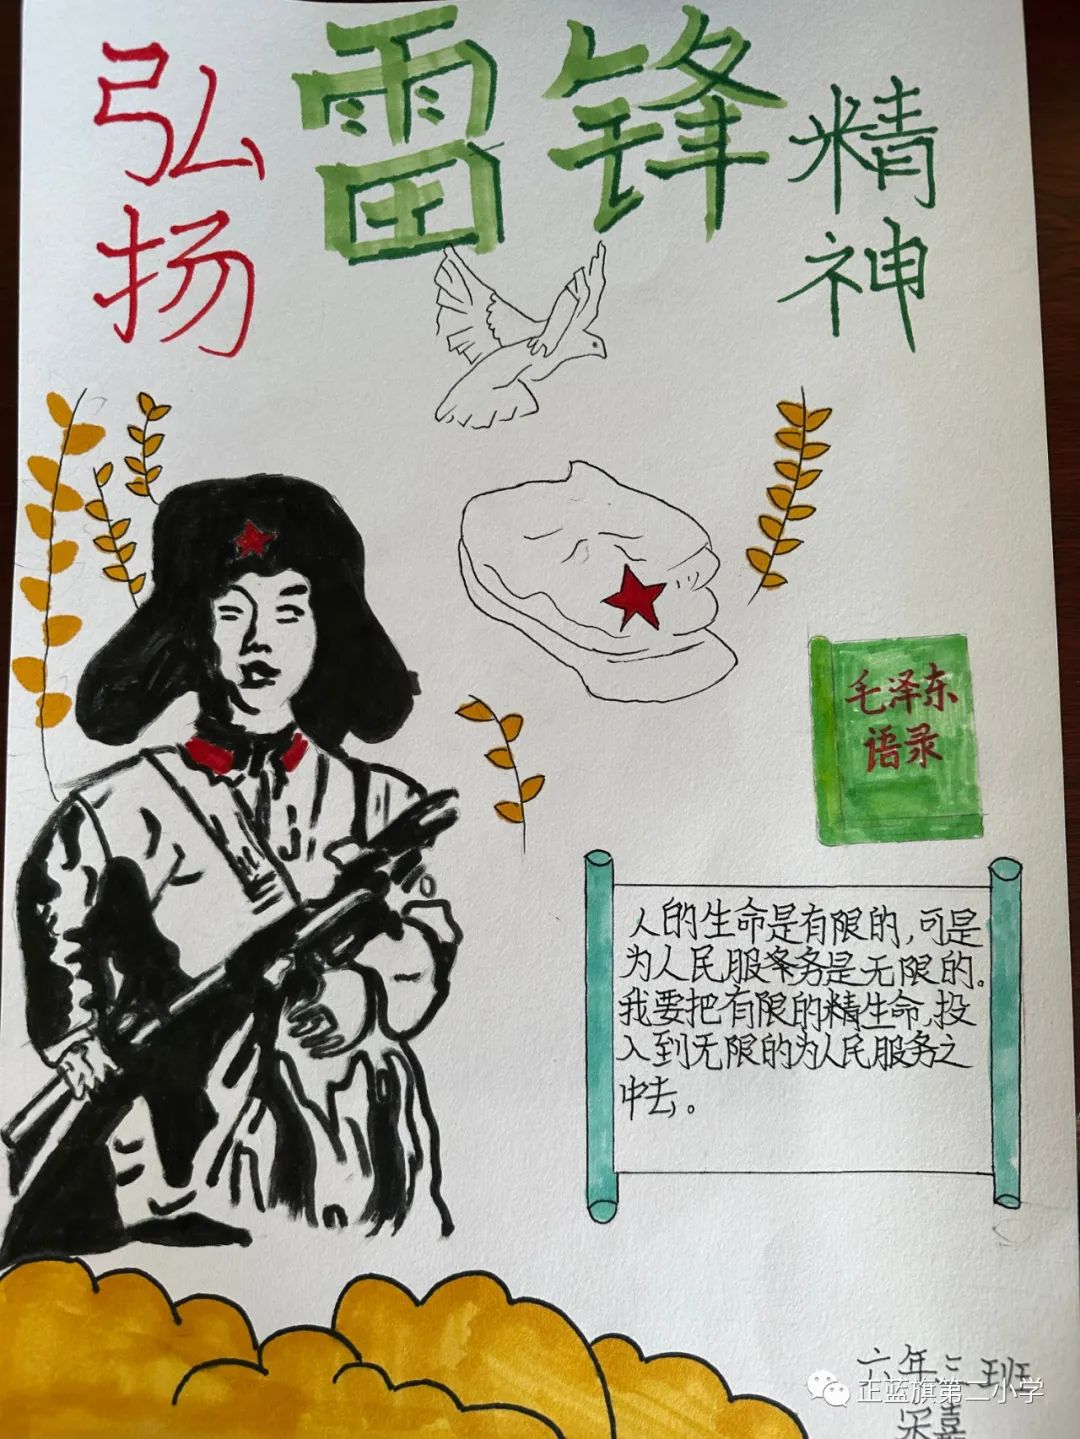 弘扬
雷锋
精神
毛泽东
语录
人的生命是有限的,可是
为人民服务是无限的。
我要把有限的精生命,投
入到无限的为人民服务之
中去。
六年三班
正蓝旗第二小学